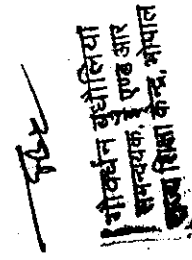 गोवर्धन बुधौलिया
समन्वयक, ई एण्ड आर
राज्य शिक्षा केन्द्र, भोपाल